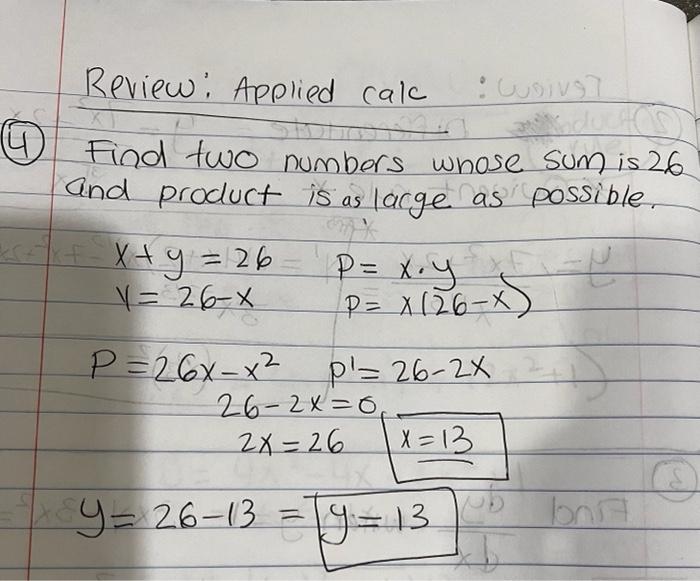 Review: Applied calc
④ Find two numbers whose sum is 26
and product is as large as possible.
x + y = 26 P = x · y
y = 26 - x P = x(26 - x)
P = 26x - x² P' = 26 - 2x
26 - 2x = 0
2x = 26 x = 13
y = 26 - 13 = y = 13